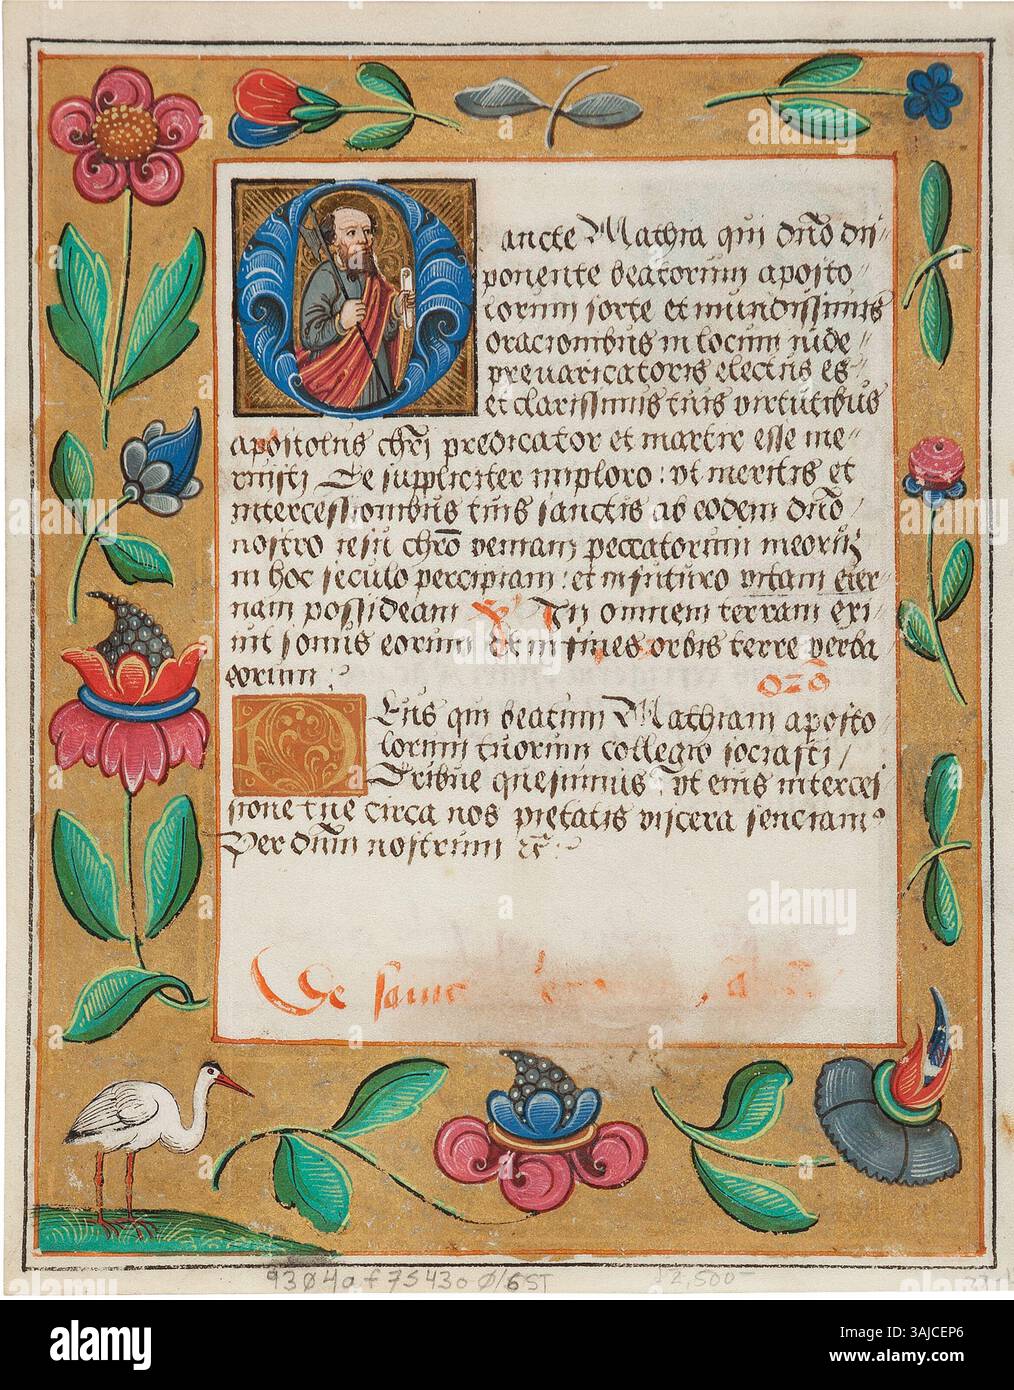 ancte Mathia qui dño di/
ponente beatorum aposto//
lorum sorte et mundissimis
oracionibus in locum iude//
preuaricatoris electus es//
et clarissimis tuis virtutibus
apostolus chri predicator et martir esse me//
ruisti Te suppliciter imploro: vt meritis et
intercessionibus tuis sanctis ab eodem dño
nostro iesu chro veniam peccatorum meorum
in hoc seculo percipiam: et in futuro vitam eter
nam possideam V In omnem terram exi//
uit sonus eorum Et in fines orbis terre verba
eorum:
ozo
DEus qui beatum Mathiam aposto
lorum tuorum collegio sociasti/
Tribue quesumus: vt eius interces
sione tue circa nos pietatis viscera senciam9
Per dum nostrum
De sanc
93040 f 7S430 Ø/6ST $2,500-
alamy
alamy
Image ID: 3AJCEP6
www.alamy.com